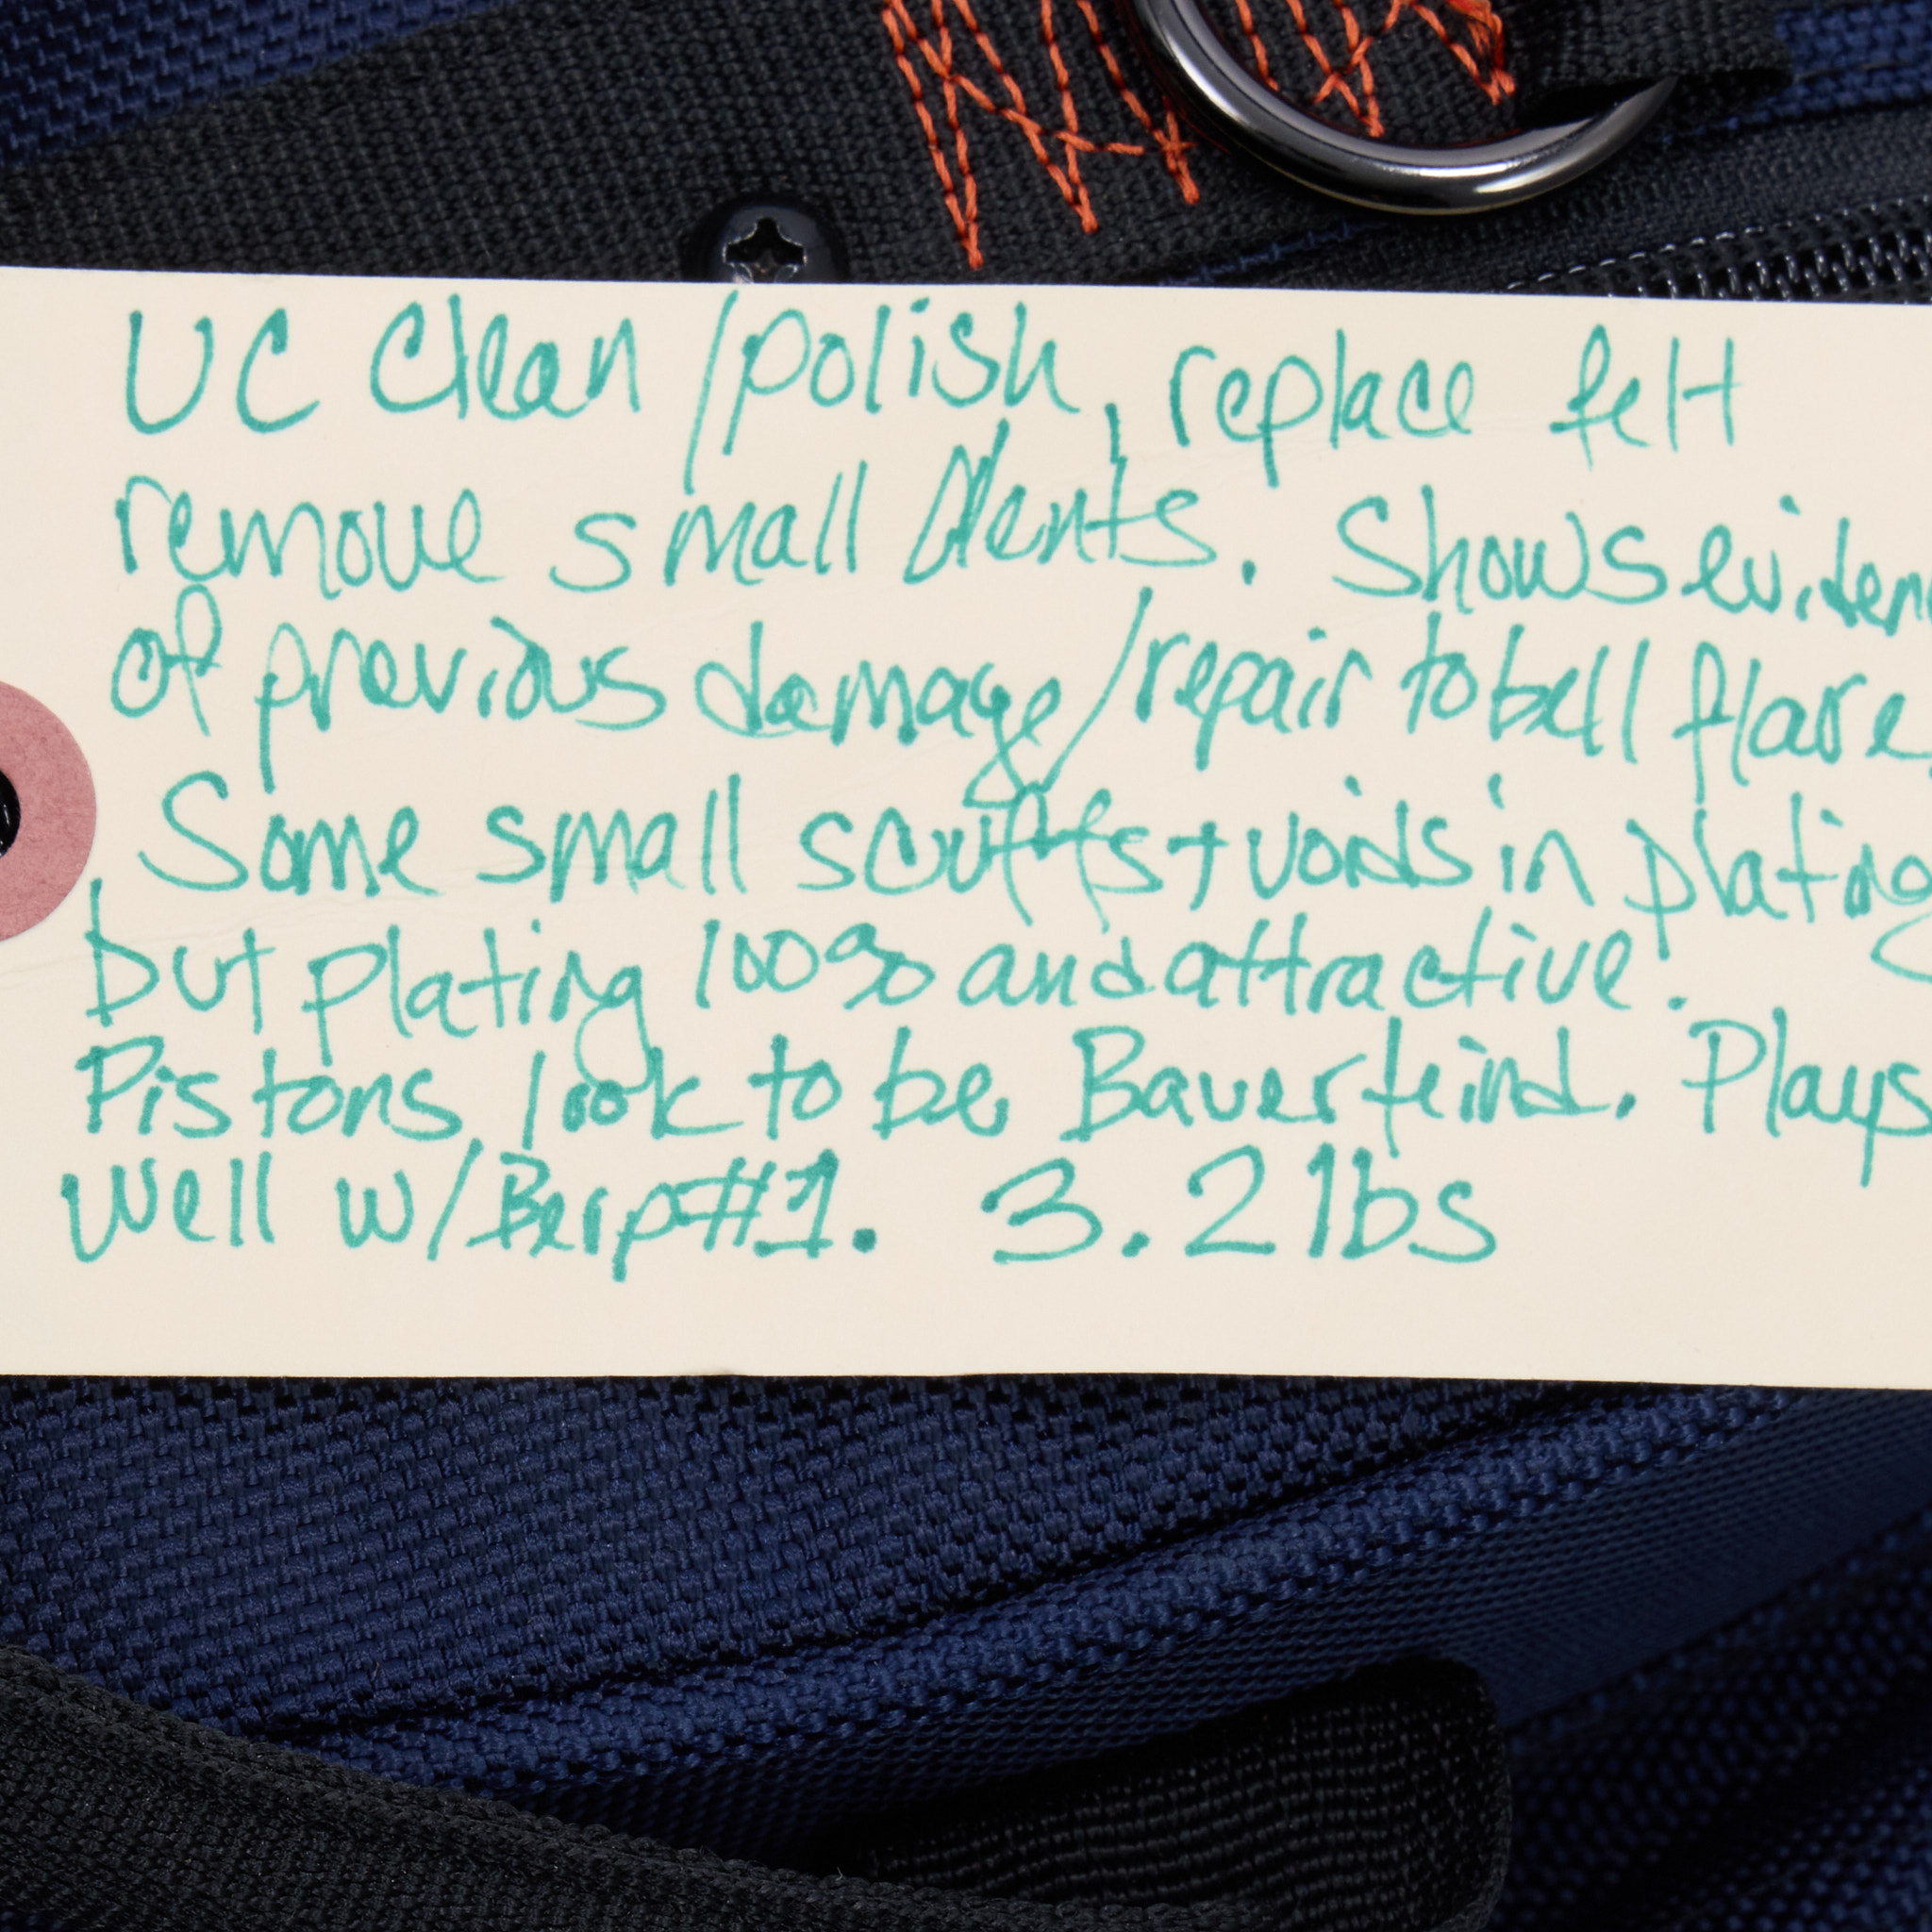 UC Clean/polish, replace felt
remove small dents. Shows eviden
of previous damage/repair to bell flare.
Some small scuffs + voids in plating
but plating 100% and attractive.
Pistons look to be Bauerfeind. Plays
well w/Berp#1. 3.2 lbs